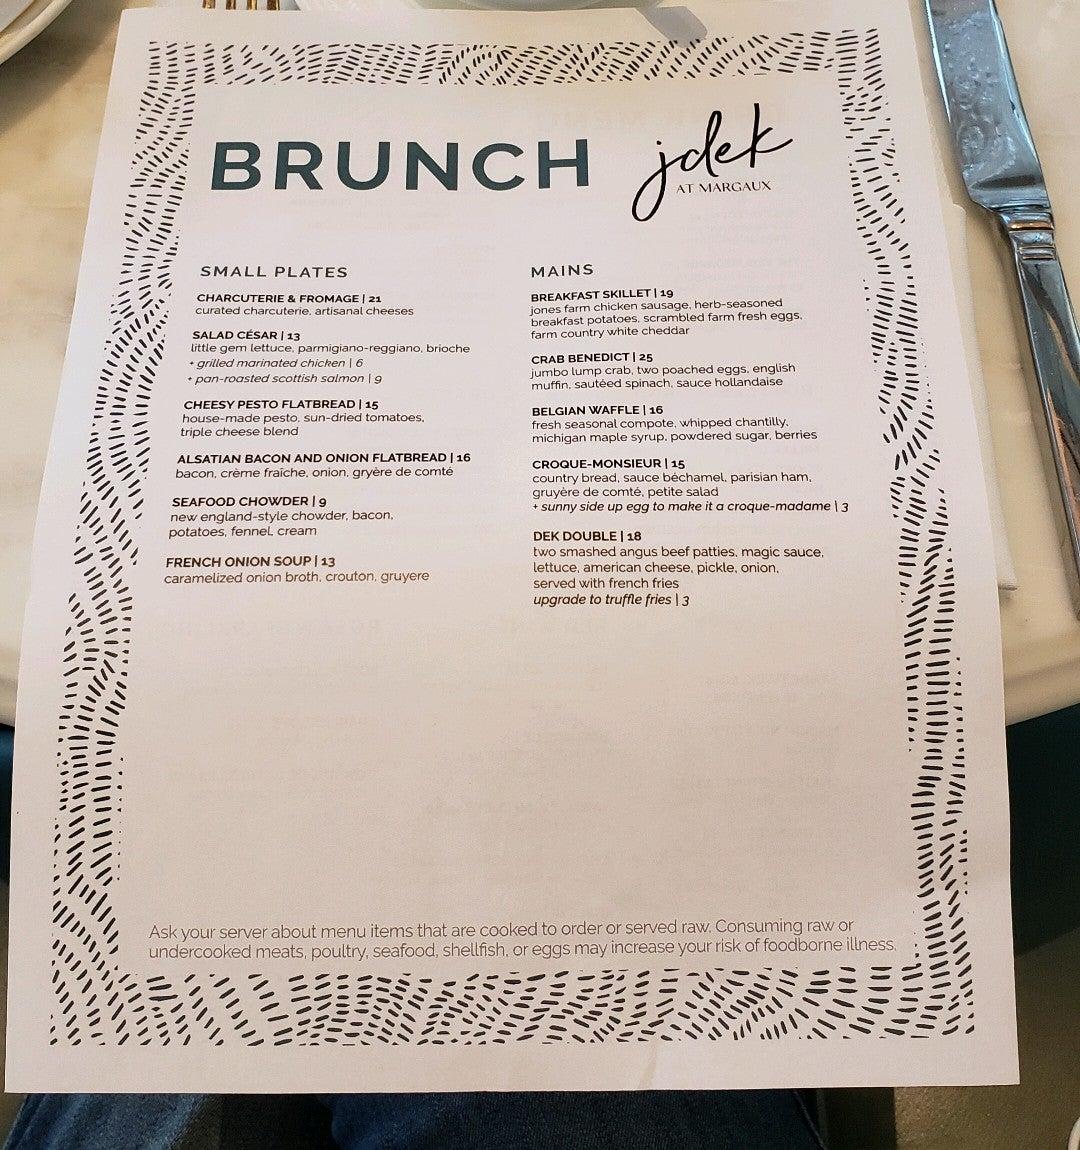 BRUNCH
jdek
AT MARGAUX
SMALL PLATES
CHARCUTERIE & FROMAGE | 21
curated charcuterie, artisanal cheeses
SALAD CÉSAR | 13
little gem lettuce, parmigiano-reggiano, brioche
+ grilled marinated chicken | 6
+ pan-roasted scottish salmon | 9
CHEESY PESTO FLATBREAD | 15
house-made pesto, sun-dried tomatoes,
triple cheese blend
ALSATIAN BACON AND ONION FLATBREAD | 16
bacon, crème fraîche, onion, gryère de comté
SEAFOOD CHOWDER | 9
new england-style chowder, bacon,
potatoes, fennel, cream
FRENCH ONION SOUP | 13
caramelized onion broth, crouton, gruyere
MAINS
BREAKFAST SKILLET | 19
jones farm chicken sausage, herb-seasoned
breakfast potatoes, scrambled farm fresh eggs,
farm country white cheddar
CRAB BENEDICT | 25
jumbo lump crab, two poached eggs, english
muffin, sautéed spinach, sauce hollandaise
BELGIAN WAFFLE | 16
fresh seasonal compote, whipped chantilly,
michigan maple syrup, powdered sugar, berries
CROQUE-MONSIEUR | 15
country bread, sauce béchamel, parisian ham,
gruyère de comté, petite salad
+ sunny side up egg to make it a croque-madame | 3
DEK DOUBLE | 18
two smashed angus beef patties, magic sauce,
lettuce, american cheese, pickle, onion,
served with french fries
upgrade to truffle fries | 3
Ask your server about menu items that are cooked to order or served raw. Consuming raw or
undercooked meats, poultry, seafood, shellfish, or eggs may increase your risk of foodborne illness.